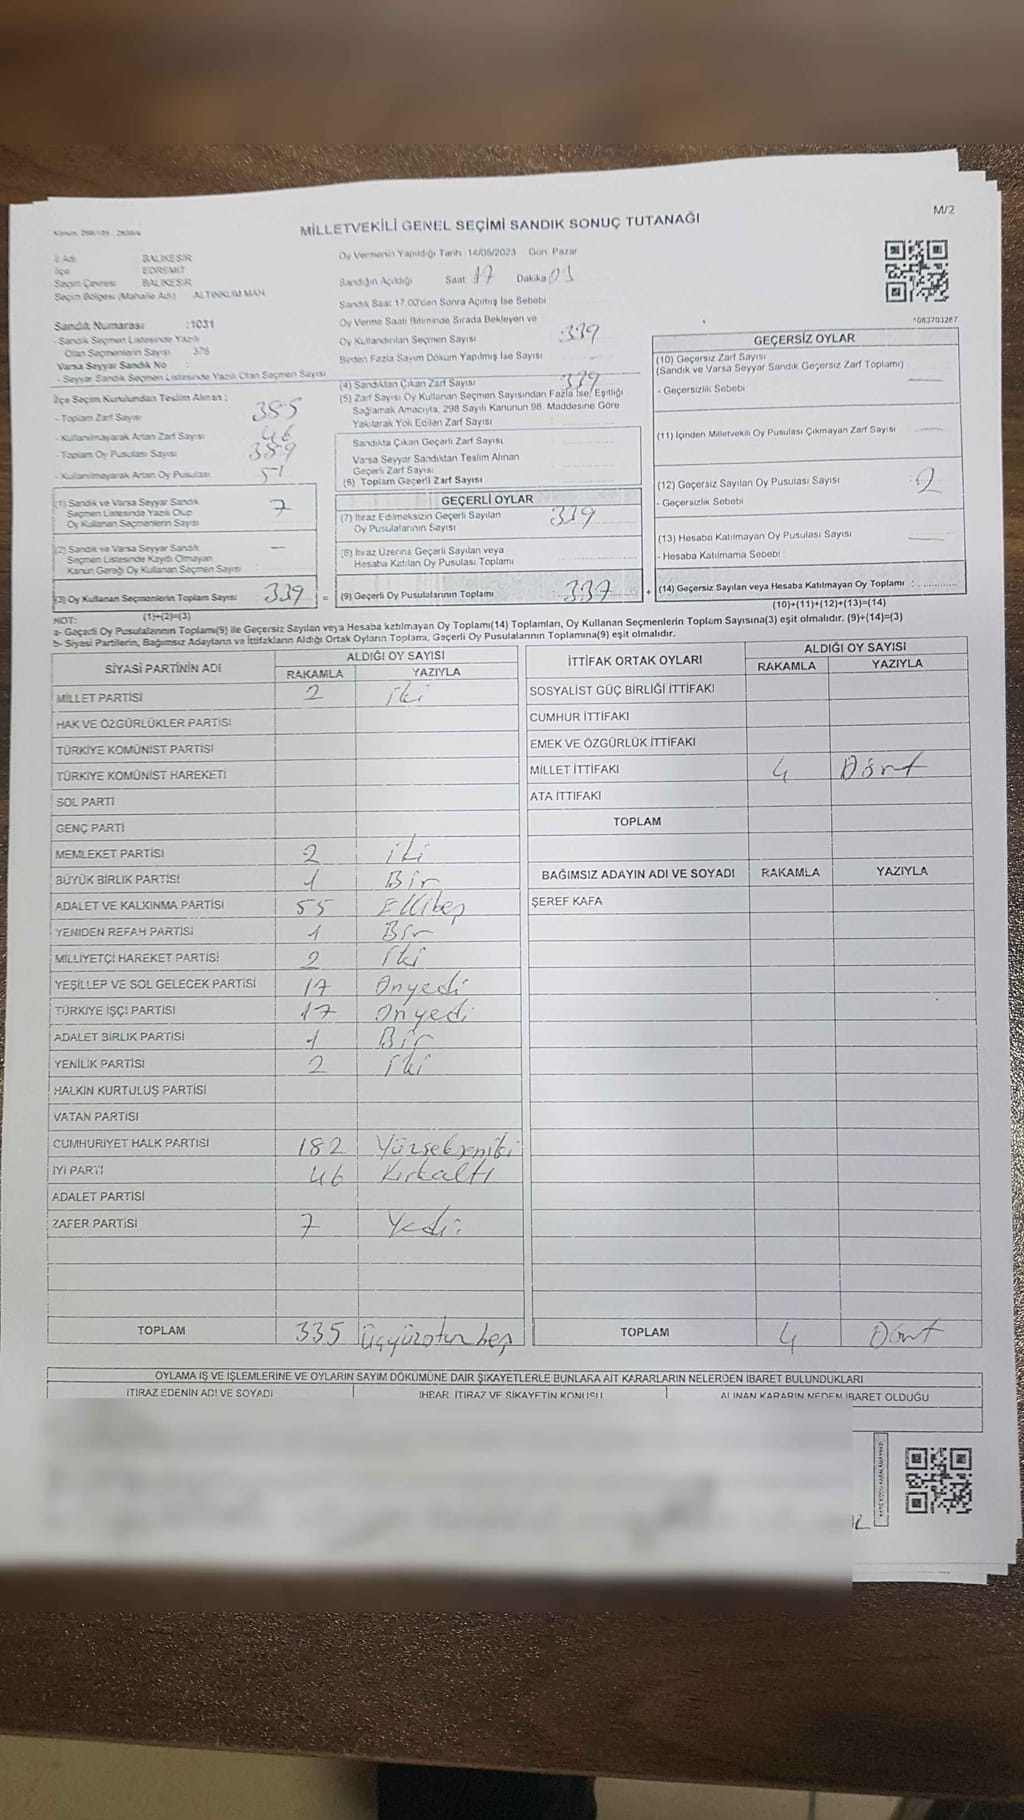 Kanun, 298/105 , 2839/4
MİLLETVEKİLİ GENEL SEÇİMİ SANDIK SONUÇ TUTANAĞI
M/2
İl Adı BALIKESİR
İlçe EDREMİT
Seçim Çevresi BALIKESİR
Seçim Bölgesi (Mahalle Adı) ALTINKUM MAH.
Sandık Numarası :1031
- Sandık Seçmen Listesinde Yazılı
Olan Seçmenlerin Sayısı 378
Varsa Seyyar Sandık No
- Seyyar Sandık Seçmen Listesinde Yazılı Olan Seçmen Sayısı
İlçe Seçim Kurulundan Teslim Alınan ;
- Toplam Zarf Sayısı 385
- Kullanılmayarak Artan Zarf Sayısı 46
- Toplam Oy Pusulası Sayısı
- Kullanılmayarak Artan Oy Pusulası 51
(1) Sandık ve Varsa Seyyar Sandık
Seçmen Listesinde Yazılı Olup
Oy Kullanan Seçmenlerin Sayısı
7
(2) Sandık ve Varsa Seyyar Sandık
Seçmen Listesinde Kayıtlı Olmayan
Kanun Gereği Oy Kullanan Seçmen Sayısı
—
(3) Oy Kullanan Seçmenlerin Toplam Sayısı 339 =
(1)+(2)=(3)
Oy Vermenin Yapıldığı Tarih :14/05/2023 Gün: Pazar
Sandığın Açıldığı Saat 17 Dakika 03
Sandık Saat 17.00'den Sonra Açılmış İse Sebebi
Oy Verme Saati Bitiminde Sırada Bekleyen ve
Oy Kullandırılan Seçmen Sayısı 339
Birden Fazla Sayım Döküm Yapılmış İse Sayısı
(4) Sandıktan Çıkan Zarf Sayısı 339
(5) Zarf Sayısı Oy Kullanan Seçmen Sayısından Fazla İse, Eşitliği
Sağlamak Amacıyla, 298 Sayılı Kanunun 98. Maddesine Göre
Yakılarak Yok Edilen Zarf Sayısı
Sandıkta Çıkan Geçerli Zarf Sayısı
Varsa Seyyar Sandıktan Teslim Alınan
Geçerli Zarf Sayısı
(6) Toplam Geçerli Zarf Sayısı
GEÇERLİ OYLAR
(7) İtiraz Edilmeksizin Geçerli Sayılan
Oy Pusulalarının Sayısı
(8) İtiraz Üzerine Geçerli Sayılan veya
Hesaba Katılan Oy Pusulası Toplamı
(9) Geçerli Oy Pusulalarının Toplamı : 337 +
1063703267
GEÇERSİZ OYLAR
(10) Geçersiz Zarf Sayısı
(Sandık ve Varsa Seyyar Sandık Geçersiz Zarf Toplamı)
- Geçersizlik Sebebi
(11) İçinden Milletvekili Oy Pusulası Çıkmayan Zarf Sayısı
(12) Geçersiz Sayılan Oy Pusulası Sayısı : 2
- Geçersizlik Sebebi
(13) Hesaba Katılmayan Oy Pusulası Sayısı
- Hesaba Katılmama Sebebi
(14) Geçersiz Sayılan veya Hesaba Katılmayan Oy Toplamı :
(10)+(11)+(12)+(13)=(14)
NOT:
a- Geçerli Oy Pusulalarının Toplamı(9) ile Geçersiz Sayılan veya Hesaba katılmayan Oy Toplamı(14) Toplamları, Oy Kullanan Seçmenlerin Toplam Sayısına(3) eşit olmalıdır. (9)+(14)=(3)
b- Siyasi Partilerin, Bağımsız Adayların ve İttifakların Aldığı Ortak Oyların Toplamı, Geçerli Oy Pusulalarının Toplamına(9) eşit olmalıdır.
SİYASİ PARTİNİN ADI ALDIĞI OY SAYISI
RAKAMLA YAZIYLA
MİLLET PARTİSİ 2 iki
HAK VE ÖZGÜRLÜKLER PARTİSİ
TÜRKİYE KOMÜNİST PARTİSİ
TÜRKİYE KOMÜNİST HAREKETİ
SOL PARTİ
GENÇ PARTİ
MEMLEKET PARTİSİ 2 iki
BÜYÜK BİRLİK PARTİSİ 1 Bir
ADALET VE KALKINMA PARTİSİ 55 Ellibeş
YENİDEN REFAH PARTİSİ 1 Bir
MİLLİYETÇİ HAREKET PARTİSİ 2 iki
YEŞİLLER VE SOL GELECEK PARTİSİ 17 Onyedi
TÜRKİYE İŞÇİ PARTİSİ 17 Onyedi
ADALET BİRLİK PARTİSİ 1 Bir
YENİLİK PARTİSİ 2 iki
HALKIN KURTULUŞ PARTİSİ
VATAN PARTİSİ
CUMHURİYET HALK PARTİSİ 182 Yüzsekseniki
İYİ PARTİ 46 Kırkaltı
ADALET PARTİSİ
ZAFER PARTİSİ 7 Yedi
TOPLAM 335 üçyüzotuzbeş
İTTİFAK ORTAK OYLARI ALDIĞI OY SAYISI
RAKAMLA YAZIYLA
SOSYALİST GÜÇ BİRLİĞİ İTTİFAKI
CUMHUR İTTİFAKI
EMEK VE ÖZGÜRLÜK İTTİFAKI
MİLLET İTTİFAKI 4 Dört
ATA İTTİFAKI
TOPLAM
BAĞIMSIZ ADAYIN ADI VE SOYADI RAKAMLA YAZIYLA
ŞEREF KAFA
TOPLAM 4 Dört
OYLAMA İŞ VE İŞLEMLERİNE VE OYLARIN SAYIM DÖKÜMÜNE DAİR ŞİKAYETLERLE BUNLARA AİT KARARLARIN NELERDEN İBARET BULUNDUKLARI
İTİRAZ EDENİN ADI VE SOYADI İHBAR, İTİRAZ VE ŞİKAYETİN KONUSU ALINAN KARARIN NEDEN İBARET OLDUĞU